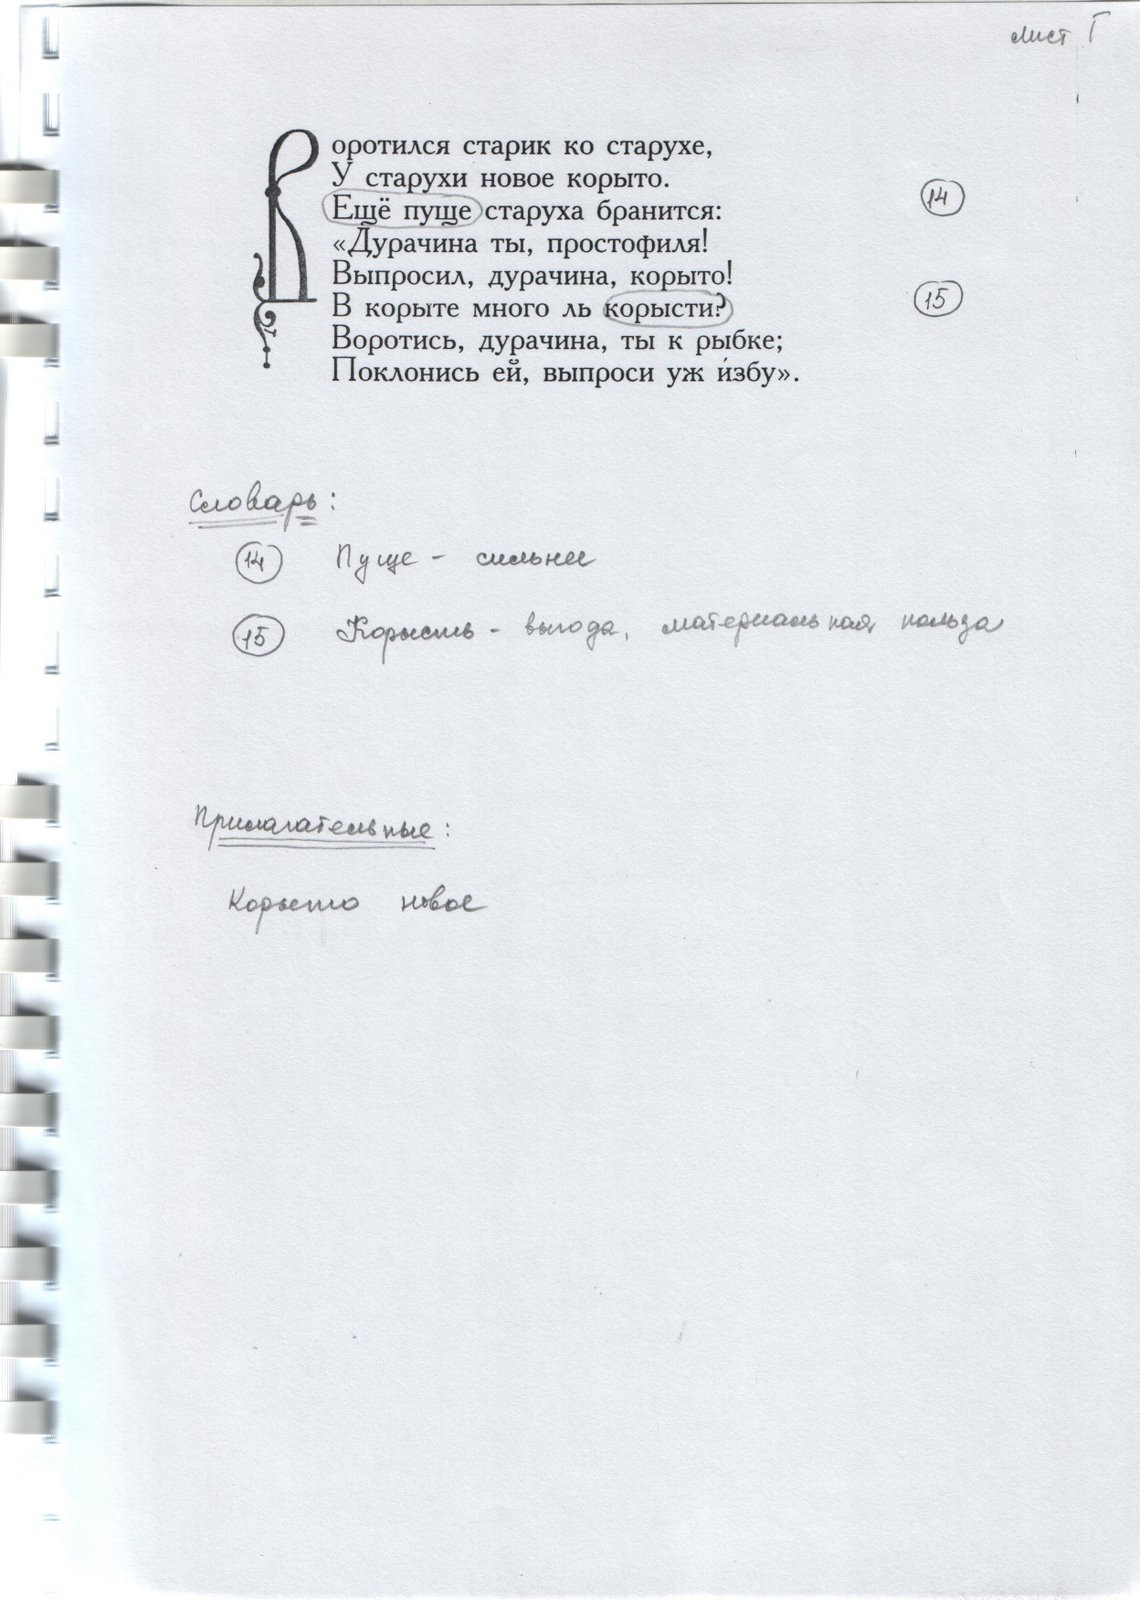 лист Г
Воротился старик ко старухе,
У старухи новое корыто.
Ещё пуще старуха бранится: 14
«Дурачина ты, простофиля!
Выпросил, дурачина, корыто!
В корыте много ль корысти? 15
Воротись, дурачина, ты к рыбке;
Поклонись ей, выпроси уж и́збу».
Словарь:
14 Пуще - сильнее
15 Корысть - выгода, материальная польза
Прилагательные:
Корыто новое